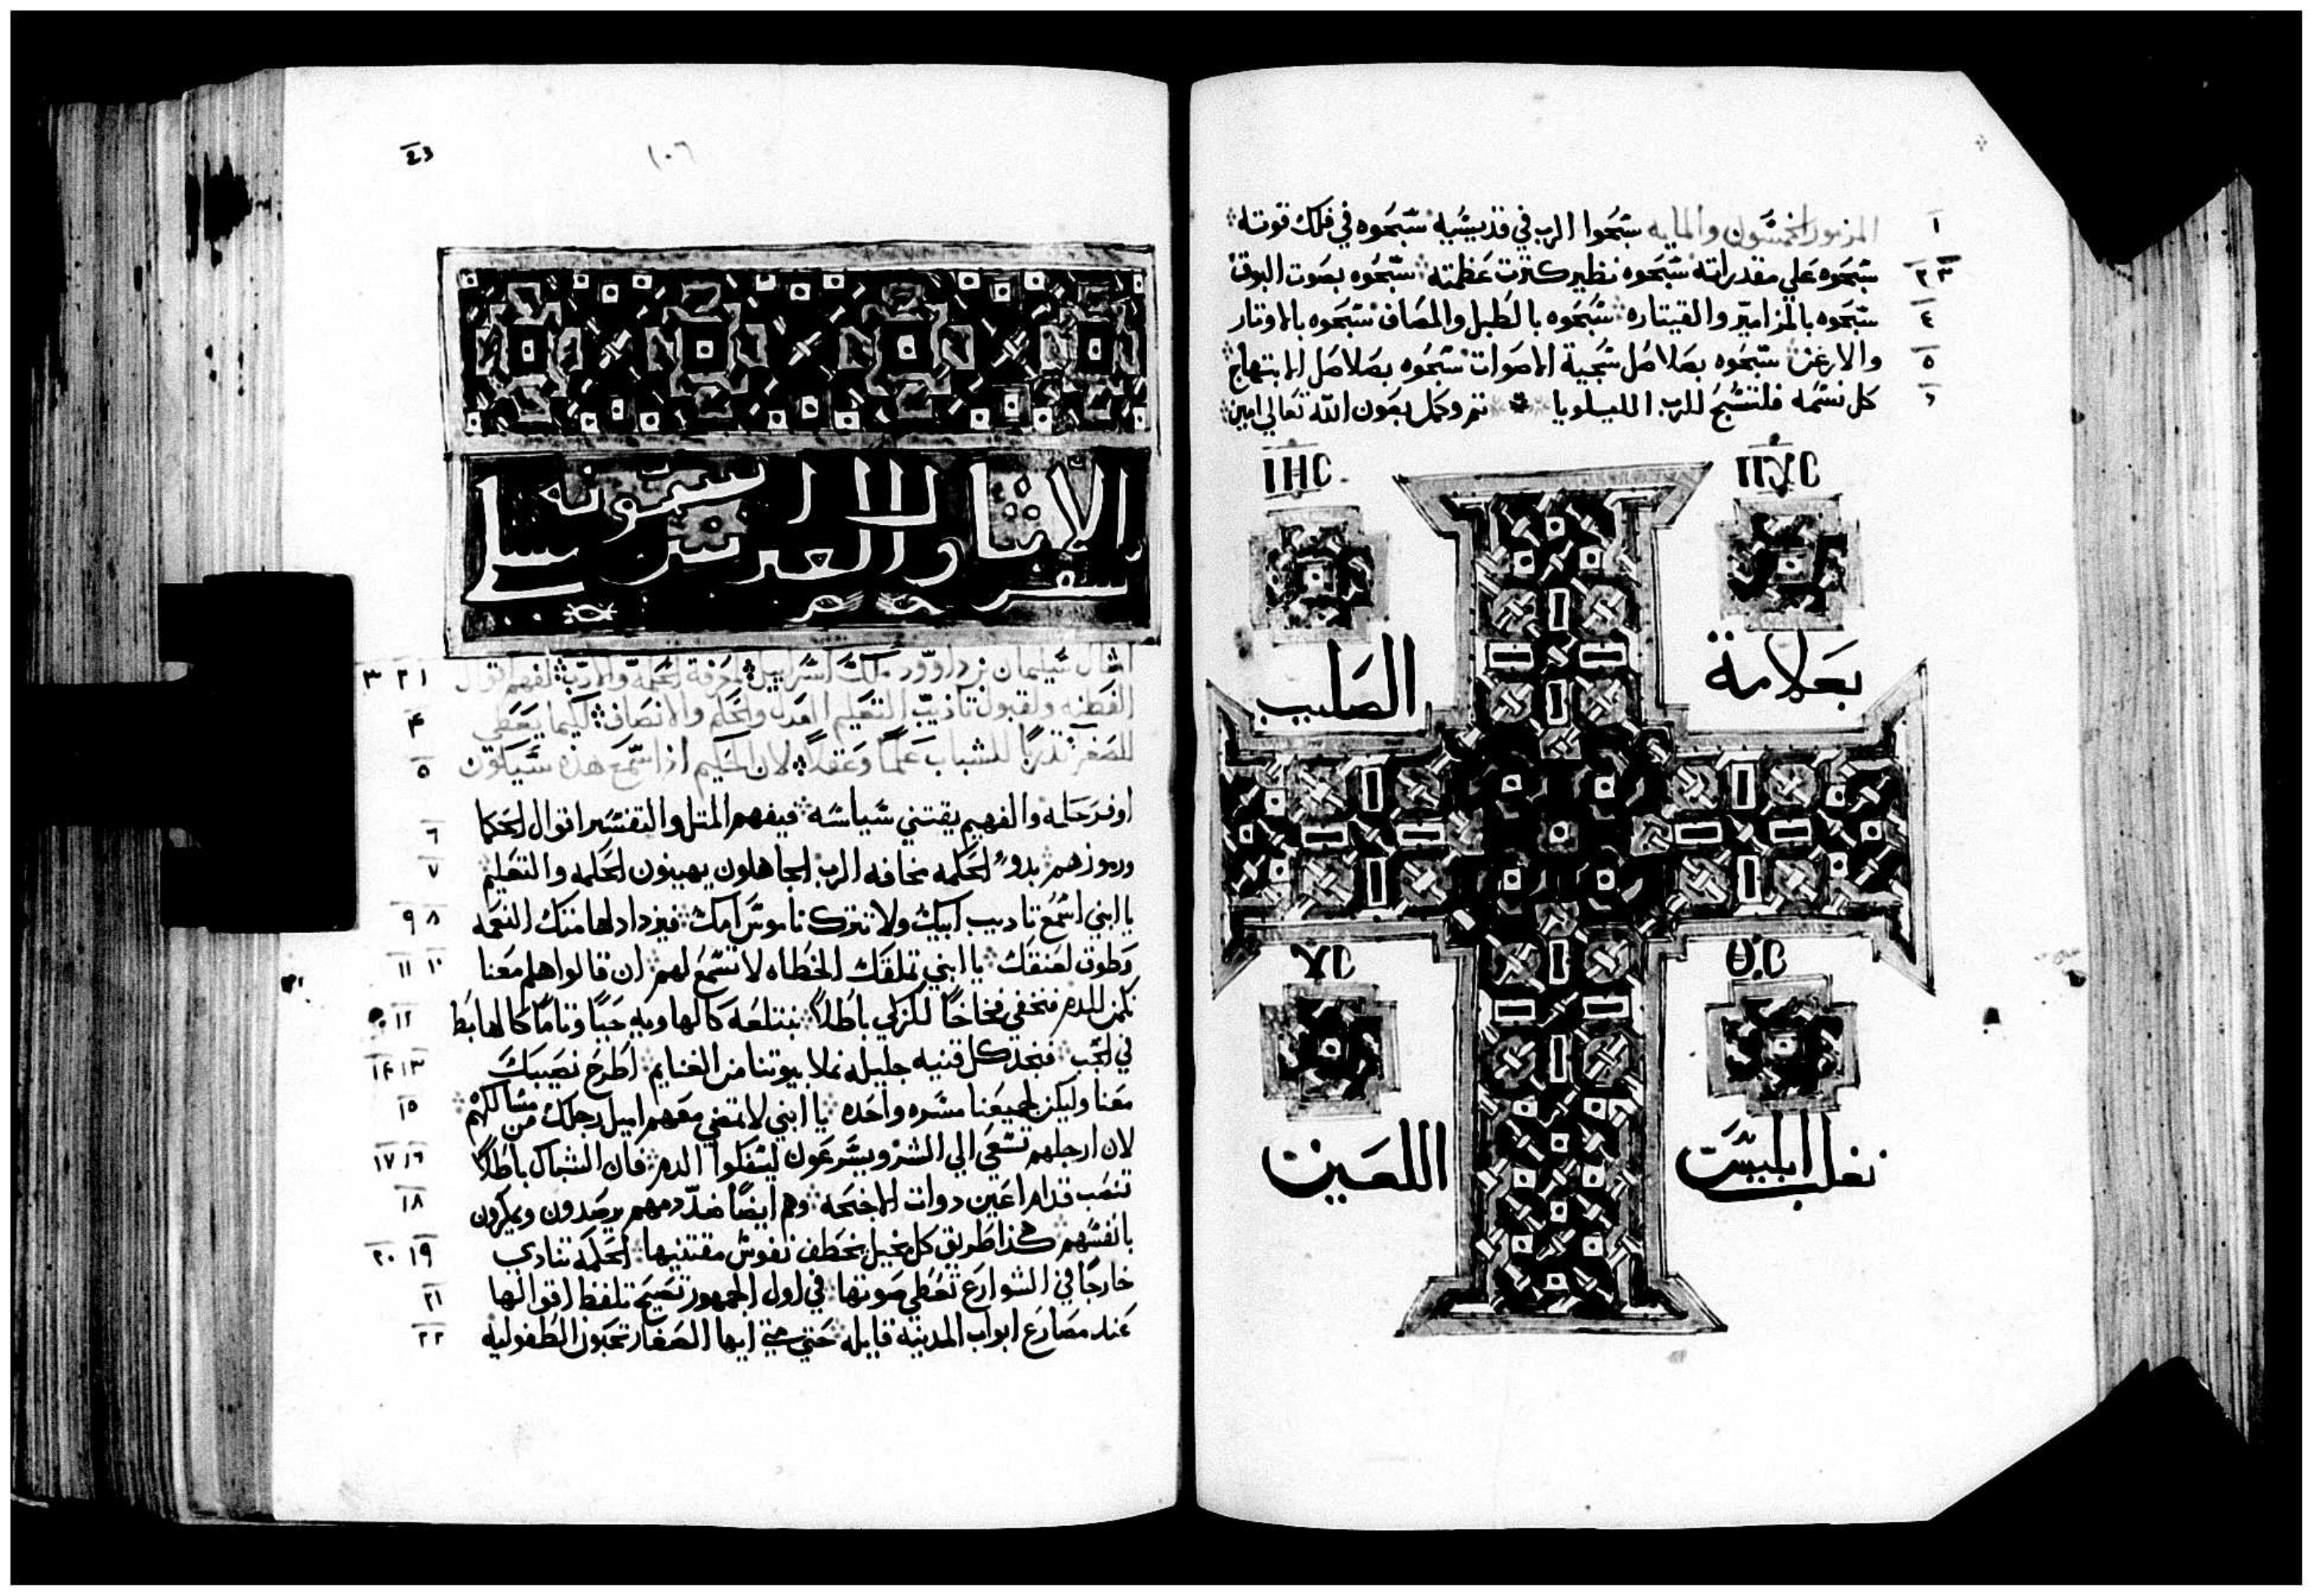 المزمور الخمسون والمايه سبحوا الرب في قديسيه سبحوه في فلك قوته
١
سبحوه علي مقدراته سبحوه نظير كثرت عظمته سبحوه بصوت البوق
٢ ٣
سبحوه بالمزامير والقيتاره سبحوه بالطبل والمصاف سبحوه بالاوتار
٤
والارغن سبحوه بصلاصل شجية الاصوات سبحوه بصلاصل الابتهاج
٥
كل نسمه فلتسبح للرب الليلويا تم وكمل بعون الله تعالي امين
٦
ΙΗC ΠΧC
بعلامة الصليب
ΥC ΘC
نغلب ابليس اللعين
١٠٦
سفر
امثال سليمان بن داوود ملك اسراييل لمعرفة الحكمة والادب لفهم اقوال
١ ٢ ٣
الفطنه ولقبول تاديب التعليم العدل والحكم والانصاف لكيما يعطي
۴
للصغر تدربا للشباب علما وعقلا لان الحكيم اذا سمع هذه سيكون
٥
اوفر حكمه والفهيم يقتني سياسه فيفهم المثل والتفسير اقوال الحكما
٦
ورموزهم بدو الحكمه مخافه الرب الجاهلون يهينون الحكمه والتعليم
٧
يا ابني اسمع تاديب ابيك ولا تترك ناموس امك فيزداد لهامتك النعمه
٨ ٩
وطوق لعنقك يا ابني تملقك الخطاه لا تسمع لهم ان قالوا هلم معنا
١٠ ١١
نكمن للدم فنخفي فخاخا للزكي باطلا نبتلعه كالهاويه حيا وتاما كالهابط
١٢
في الجب فنجد كل قنيه جليله نملا بيوتنا من الغنايم اطرح نصيبك
١٣ ١۴
معنا وليكن لجميعنا مسره واحده يا ابني لا تمضي معهم اميل رجلك من مسالكهم
١٥
لان ارجلهم تسعي الي الشر ويسرعون ليسفكوا الدم فان الشباك باطلا
١٦ ١٧
تنصب قدام اعين دوات الاجنحه وهم ايضا ضد دمهم يرصدون ويمكرون
١٨
بانفسهم هكذا طريق كل بخيل يخطف نفوس مقتنيها الحكمه تنادي
١٩ ٢٠
خارجا في الشوارع تعطي صوتها في اول الجمهور تصيح تلفظ اقوالها
٢١
عند مصارع ابواب المدينه قايله حتي متي ايها الصغار تحبون الطفوليه
٢٢